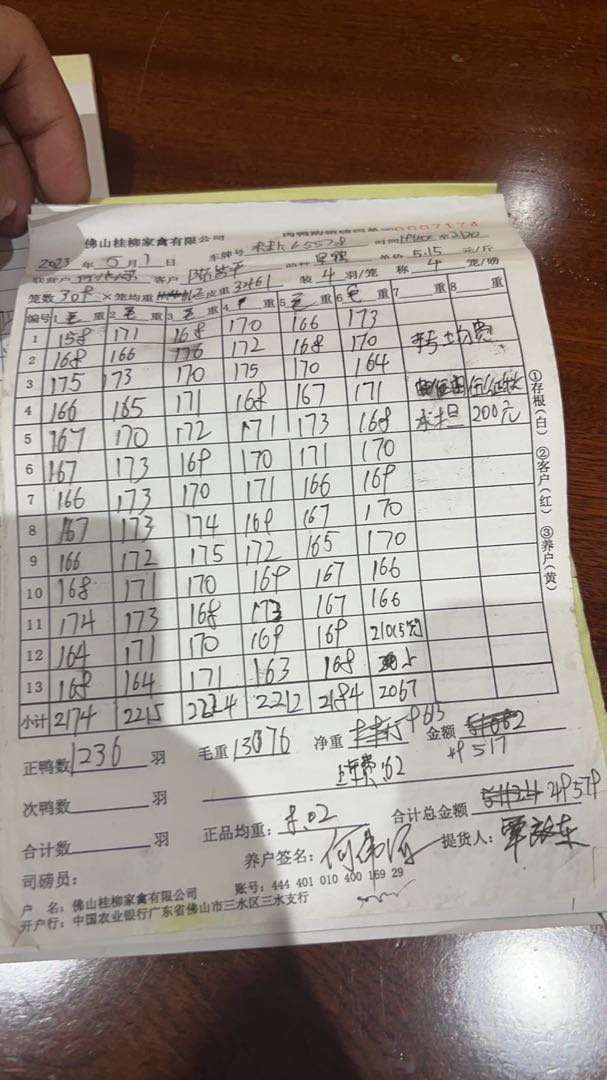 佛山桂柳家禽有限公司 0007174
2023 年 5 月 1 日 车牌号 时间
客户 单价 5.15 元/斤
笼数 309 × 笼均重 皮重 3461 装 4 羽/笼 称 4 笼/磅
编号 1 毛 重 2 毛 重 3 毛 重 4 重 5 毛 重 6 毛 重 7 重 8 重
1 158 171 168 170 166 173
2 168 166 176 172 168 170
3 175 173 170 175 170 164
4 166 165 171 168 167 171
5 167 170 172 171 173 168 承担 200元
6 167 173 169 170 171 170
7 166 173 170 171 166 169
8 167 173 174 169 167 170
9 166 172 175 172 165 170
10 168 171 170 169 167 166
11 174 173 168 173 167 166
12 164 171 170 169 169 210(5笼)
13 168 164 171 163 168
小计 2174 2215 2224 2212 2184 2067
正鸭数 1236 羽 毛重 13076 净重 9615 金额 49517
次鸭数 羽 上车费 62
合计数 羽 正品均重: 8.02 合计总金额 49579
司磅员: 养户签名: 提货人:
户 名: 佛山桂柳家禽有限公司 账号: 444 401 010 400 169 29
开户行: 中国农业银行广东省佛山市三水区三水支行
①存根(白) ②客户(红) ③养户(黄)